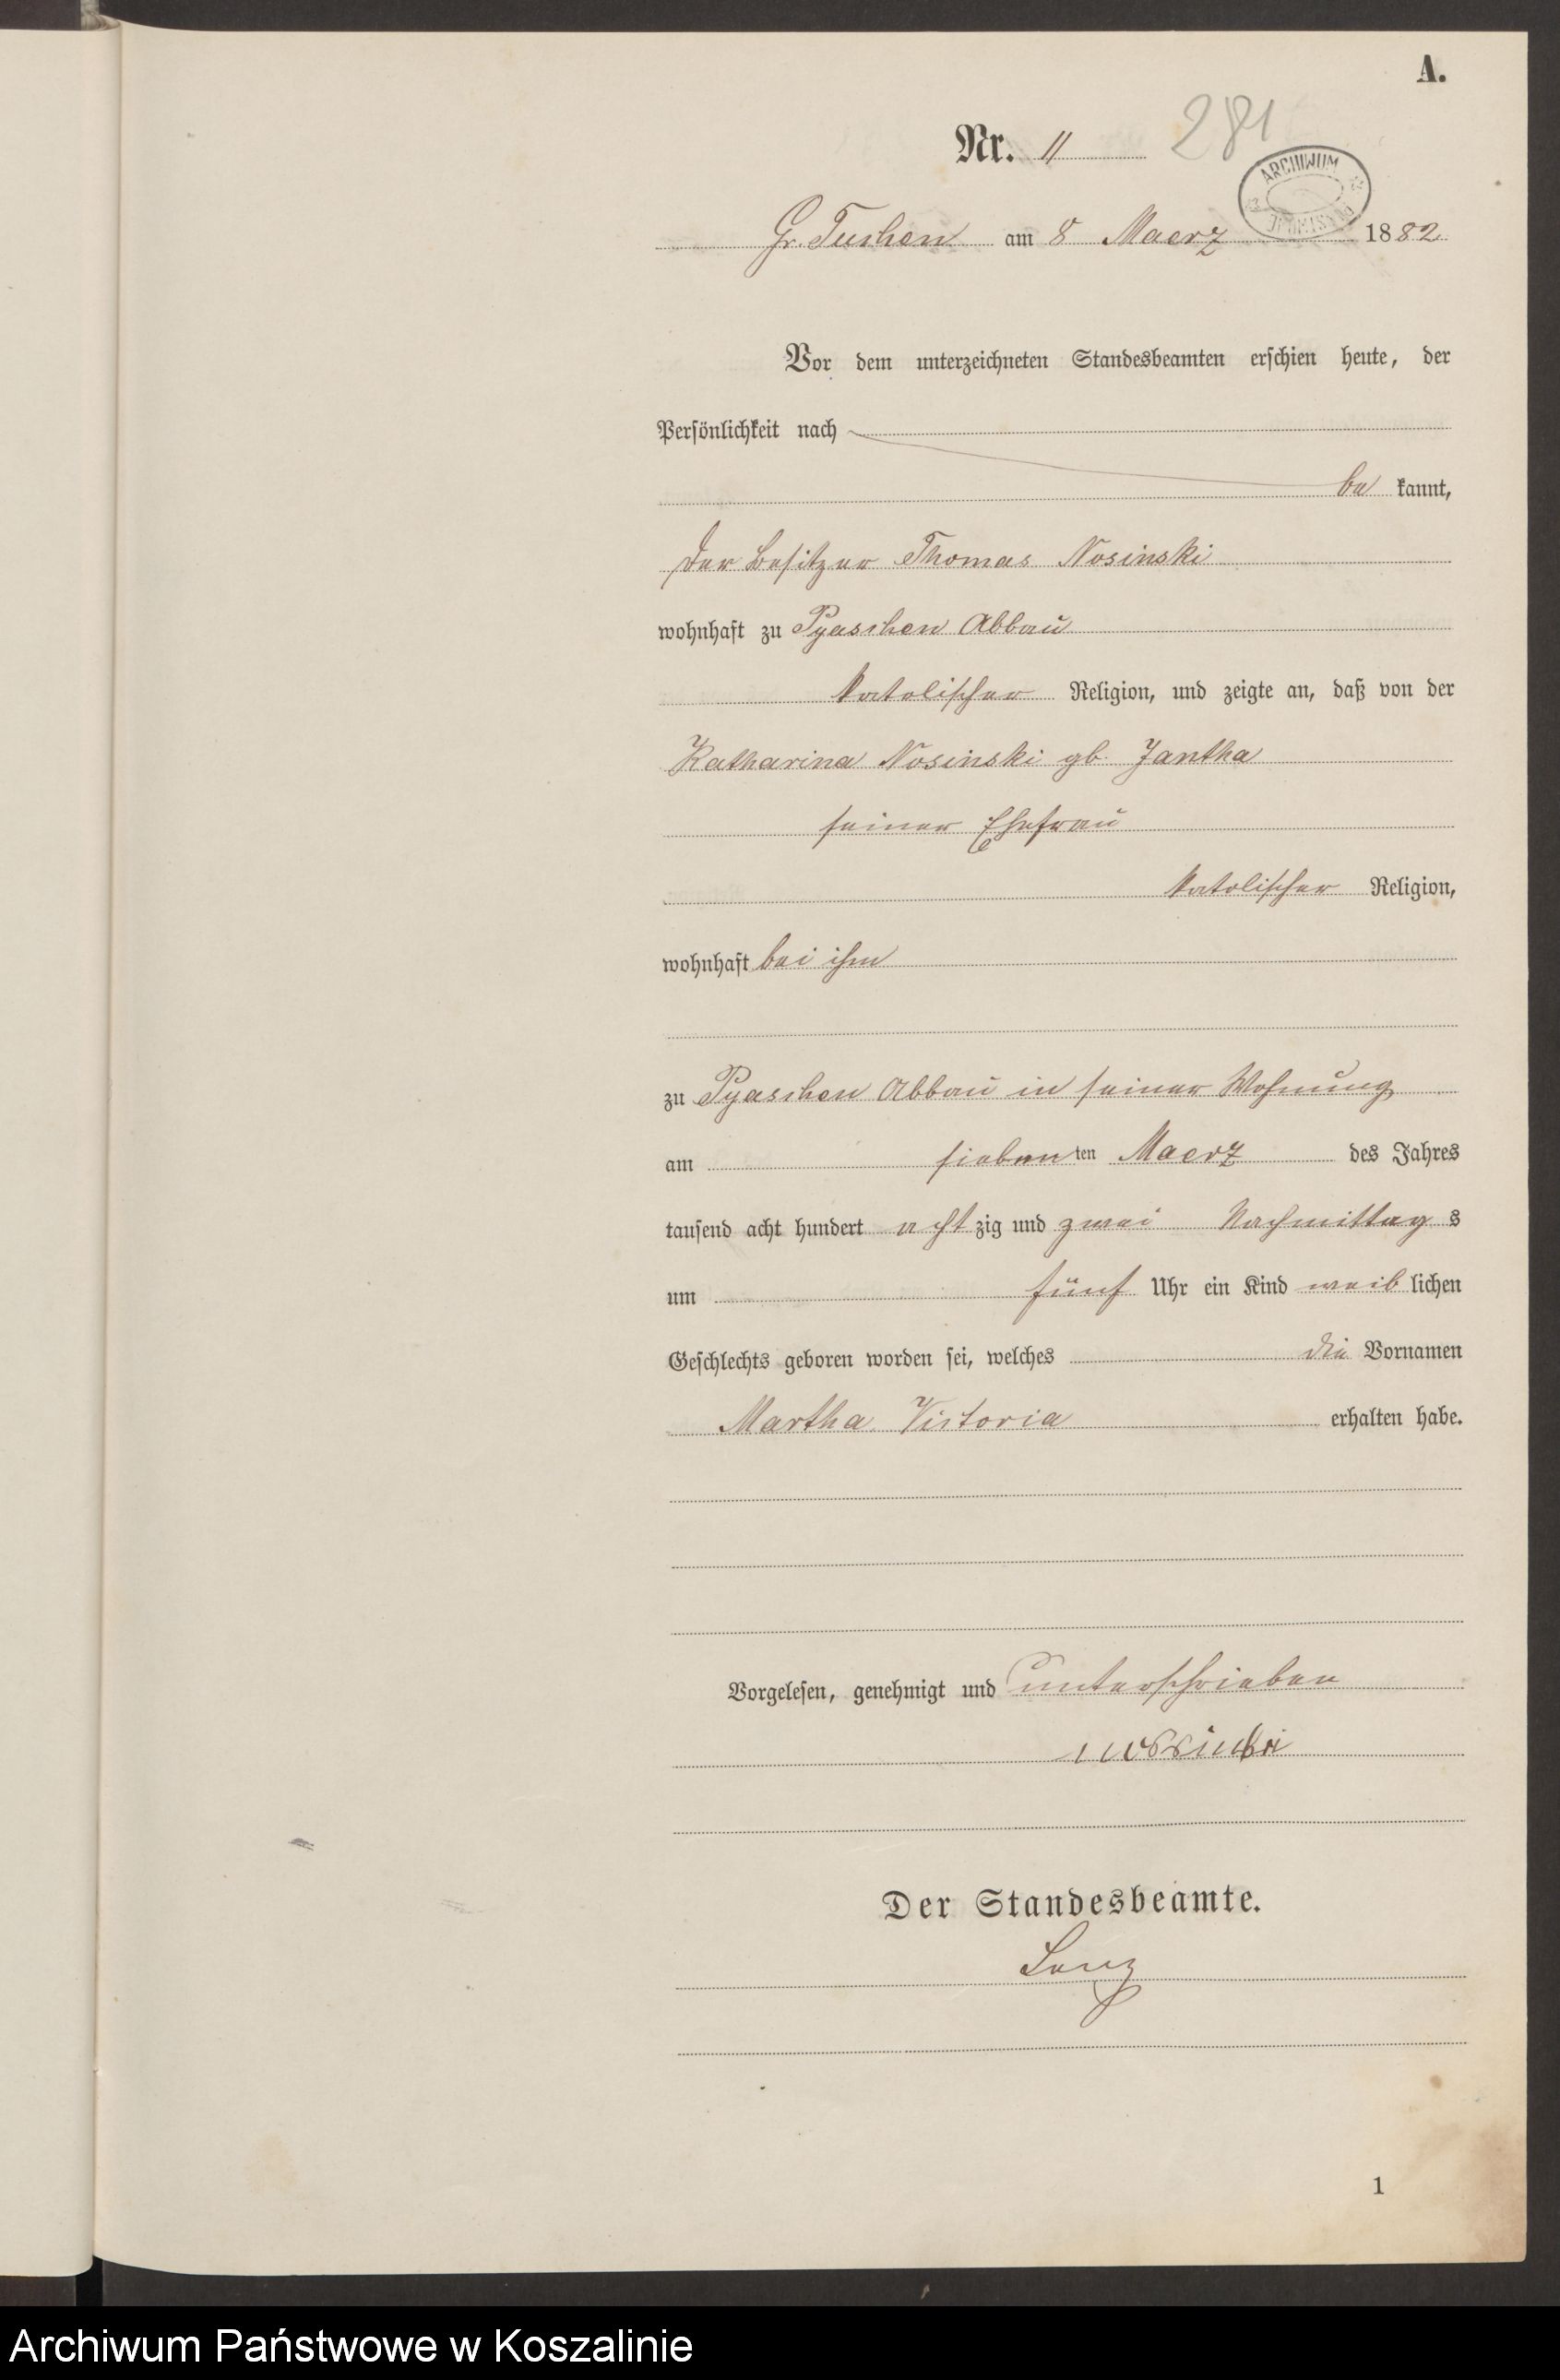 A.
Nr. 11
281
ARCHIWUM
Gr. Tuchen am 8 Maerz 1882
Vor dem unterzeichneten Standesbeamten erschien heute, der
Persönlichkeit nach
be kannt,
der Besitzer Thomas Nosinski
wohnhaft zu Pyaschen Abbau
katolischer Religion, und zeigte an, daß von der
Katharina Nosinski gb. Jantha
seiner Ehefrau
katolischer Religion,
wohnhaft bei ihm
zu Pyaschen Abbau in seiner Wohnung
am sieben ten Maerz des Jahres
tausend acht hundert acht zig und zwei Nachmittag s
um fünf Uhr ein Kind weib lichen
Geschlechts geboren worden sei, welches die Vornamen
Martha Victoria erhalten habe.
Vorgelesen, genehmigt und unterschrieben
Der Standesbeamte.
1
Archiwum Państwowe w Koszalinie